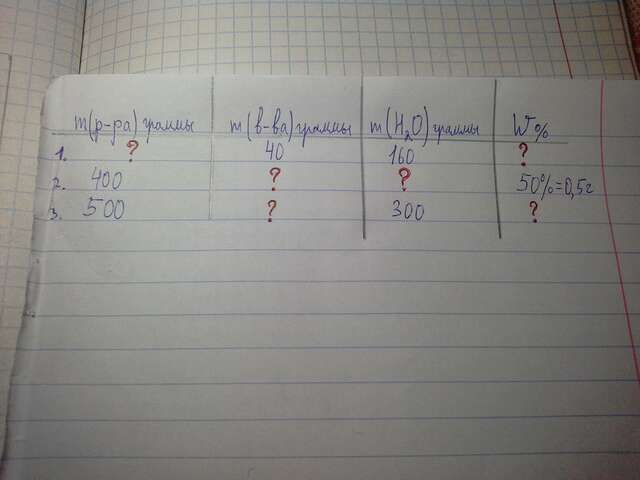 m(р-ра) граммы m(в-ва) граммы m(H₂O) граммы W%
1. ? 40 160 ?
2. 400 ? ? 50%=0,5г
3. 500 ? 300 ?